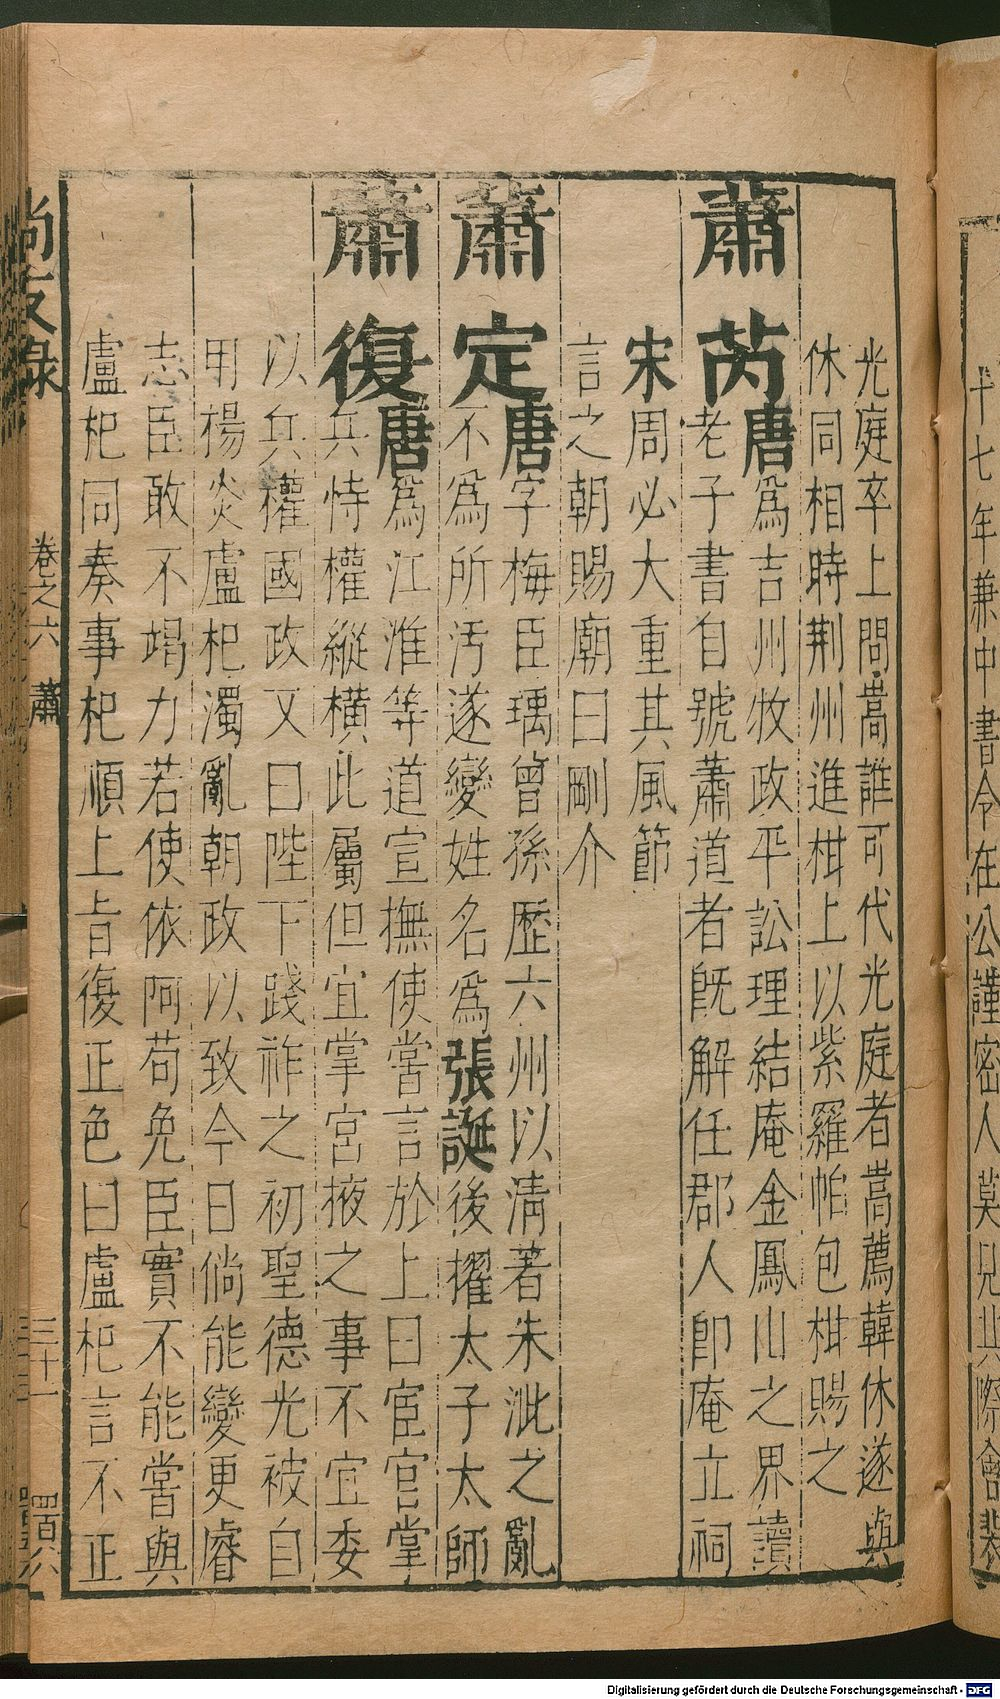 十七年兼中書令在公謹密人莫見其際會裴
光庭卒上問嵩誰可代光庭者嵩薦韓休遂與
休同相時荆州進柑上以紫羅帕包柑賜之
蕭芮唐爲吉州牧政平訟理結庵金鳳山之界讀
老子書自號蕭道者既解任郡人卽庵立祠
宋周必大重其風節
言之朝賜廟曰剛介
蕭定唐字梅臣瑀曾孫歷六州以淸著朱泚之亂
不爲所汚遂變姓名爲張誕後擢太子太師
蕭復唐爲江淮等道宣撫使嘗言於上曰宦官掌
兵恃權縱橫此屬但宜掌宮掖之事不宜委
以兵權國政又曰陛下踐祚之初聖德光被自
用楊炎盧杞濁亂朝政以致今日倘能變更睿
志臣敢不竭力若使依阿苟免臣實不能嘗與
盧杞同奏事杞順上旨復正色曰盧杞言不正
尚友錄 卷之六 蕭 三十一